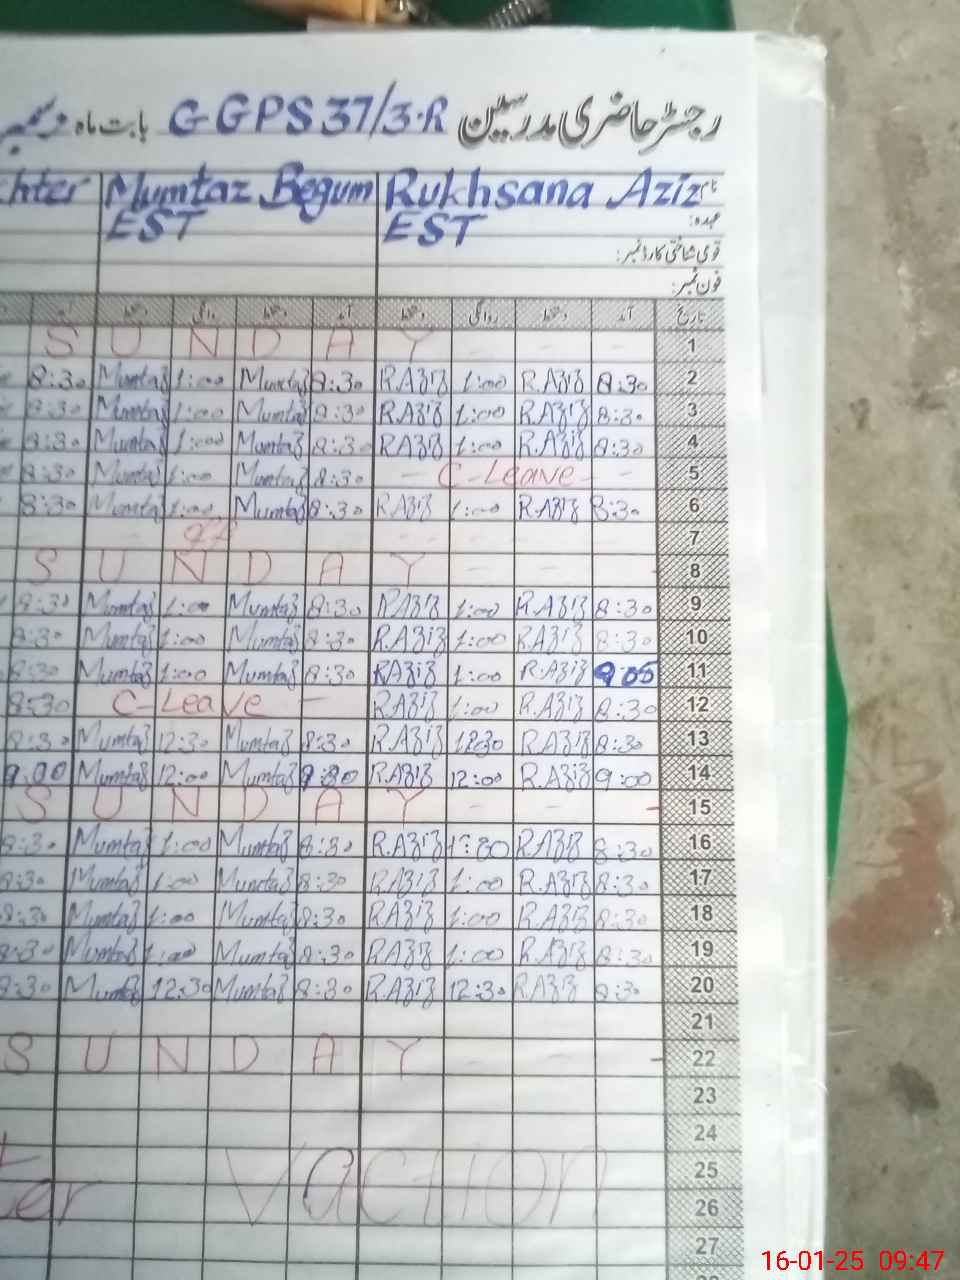 رجسٹر حاضری مدرسین G GPS 37/3-R بابت ماہ دسمبر
نام Rukhsana Aziz Mumtaz Begum
عہدہ: EST EST
قومی شناختی کارڈ نمبر:
فون نمبر:
تاریخ آمد دستخط روانگی دستخط آمد دستخط روانگی دستخط
S U N D A Y - - - 1
8:30 Mumtaz 1:00 Mumtaz 8:30 R.Aziz 1:00 R.Aziz 8:30 2
8:30 Mumtaz 1:00 Mumtaz 8:30 R.Aziz 1:00 R.Aziz 8:30 3
8:30 Mumtaz 1:00 Mumtaz 8:30 R.Aziz 1:00 R.Aziz 8:30 4
8:30 Mumtaz 1:00 Mumtaz 8:30 - C-Leave - 5
8:30 Mumtaz 1:00 Mumtaz 8:30 R.Aziz 1:00 R.Aziz 8:30 6
off 7
S U N D A Y - - 8
8:30 Mumtaz 1:00 Mumtaz 8:30 R.Aziz 1:00 R.Aziz 8:30 9
8:30 Mumtaz 1:00 Mumtaz 8:30 R.Aziz 1:00 R.Aziz 8:30 10
8:30 Mumtaz 1:00 Mumtaz 8:30 R.Aziz 1:00 R.Aziz 9:05 11
8:30 C-Leave - R.Aziz 1:00 R.Aziz 8:30 12
8:30 Mumtaz 12:30 Mumtaz 8:30 R.Aziz 12:30 R.Aziz 8:30 13
9:00 Mumtaz 12:00 Mumtaz R.Aziz 12:00 R.Aziz 9:00 14
S U N D A Y - - - 15
8:30 Mumtaz 1:00 Mumtaz 8:30 R.Aziz R.Aziz 8:30 16
8:30 Mumtaz 1:00 Mumtaz 8:30 R.Aziz 1:00 R.Aziz 8:30 17
8:30 Mumtaz 1:00 Mumtaz 8:30 R.Aziz 1:00 R.Aziz 8:30 18
8:30 Mumtaz 1:00 Mumtaz 8:30 R.Aziz 1:00 R.Aziz 8:30 19
8:30 Mumtaz 12:30 Mumtaz 8:30 R.Aziz 12:30 R.Aziz 8:30 20
21
S U N D A Y - - - 22
23
24
Vaction 25
26
27
16-01-25 09:47